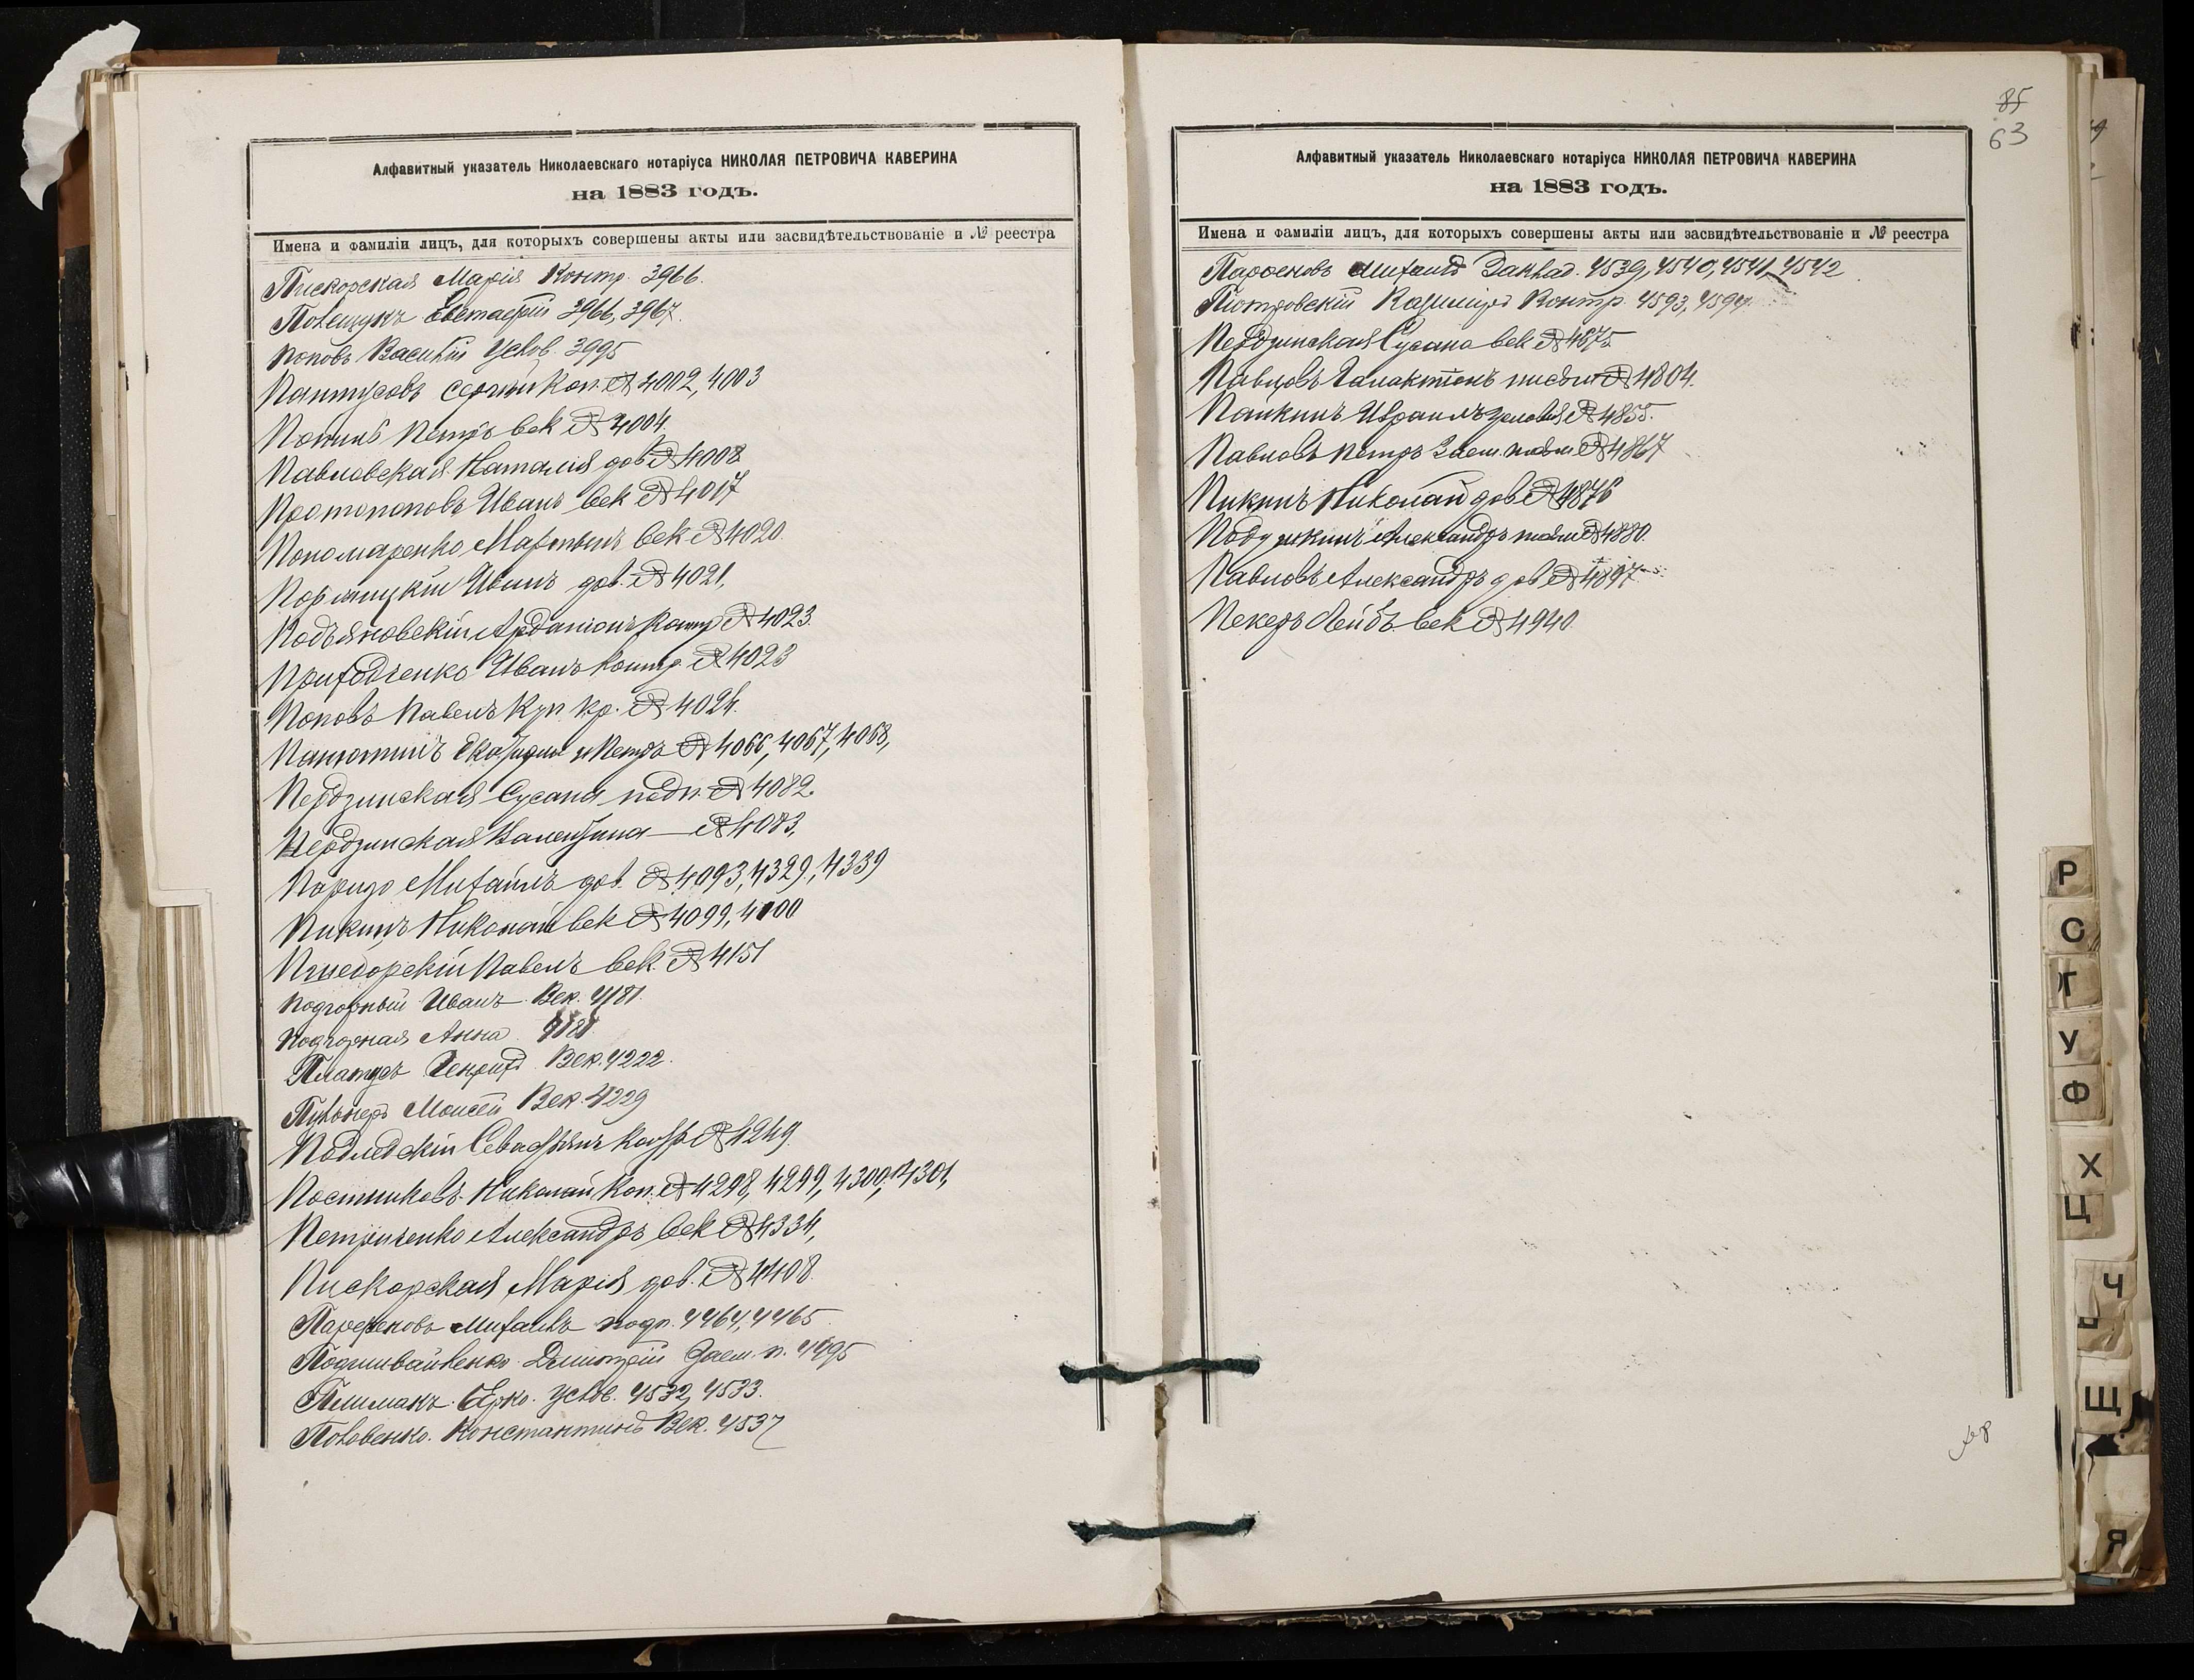 Алфавитный указатель Николаевскаго нотаріуса НИКОЛАЯ ПЕТРОВИЧА КАВЕРИНА
на 1883 годъ.
Имена и фамиліи лицъ, для которыхъ совершены акты или засвидѣтельствованіе и № реестра
Пискорская Марія Контр. 3966.
Полещукъ Евстафій 3966, 3967.
Поповъ Василій Услов. 3995
Пантусовъ Сергѣй Коп. № 4002, 4003
Попинъ Петръ век № 4004.
Павловская Наталія дов № 4008
Протопоповъ Иванъ век № 4017
Пономаренко Мартынъ век № 4020.
Иванъ дов. № 4021,
Подъяновскій контр № 4023.
Приходченко Иванъ контр. № 4023
Поповъ Павелъ Куп. кр. № 4024.
Панютинъ и Петръ № 4066, 4067, 4068,
Пердзинская Сусана подп. № 4082.
Пердзинская Валентина — № 4083,
Паридо Михаилъ дов. № 4093, 4329, 4339
Пикинъ Николай век № 4099, 4100
Павелъ век. № 4151
Подгорный Иванъ Век. 4181.
Подгорная Анна 4181.
Генрихъ Век. 4222.
Моисей Век. 4229
№ 4249
Постниковъ Николай Коп. № 4298, 4299, 4300, 4301,
Петриченко Александръ век № 4334,
Пискорская Марія дов. № 4408.
Парфеновъ Михаилъ подп. 4464, 4465
Подшивайленко Дмитрій Заем. п. 4495
Шлимакъ Услов. 4532, 4533.
Половенко. Константинъ Век. 4537
85
63
Алфавитный указатель Николаевскаго нотаріуса НИКОЛАЯ ПЕТРОВИЧА КАВЕРИНА
на 1883 годъ.
Имена и фамиліи лицъ, для которыхъ совершены акты или засвидѣтельствованіе и № реестра
Парфеновъ Михаилъ Заклад. 4539, 4540, 4541, 4542
Піотровскій Казиміръ Контр. 4593, 4594.
Пердзинская Сусана век № 4675
Павловъ Галактіонъ № 4804.
Папкинъ условія № 4855.
Павловъ Петръ Заем. № 4867
Пикинъ Николай дов. № 4876
Подушкинъ Александръ № 4880.
Павловъ Александръ дов № 4897
Пекеръ Лейбъ век № 4940.
Р
С
Т
У
Ф
Х
Ц
Ч
Щ
Я